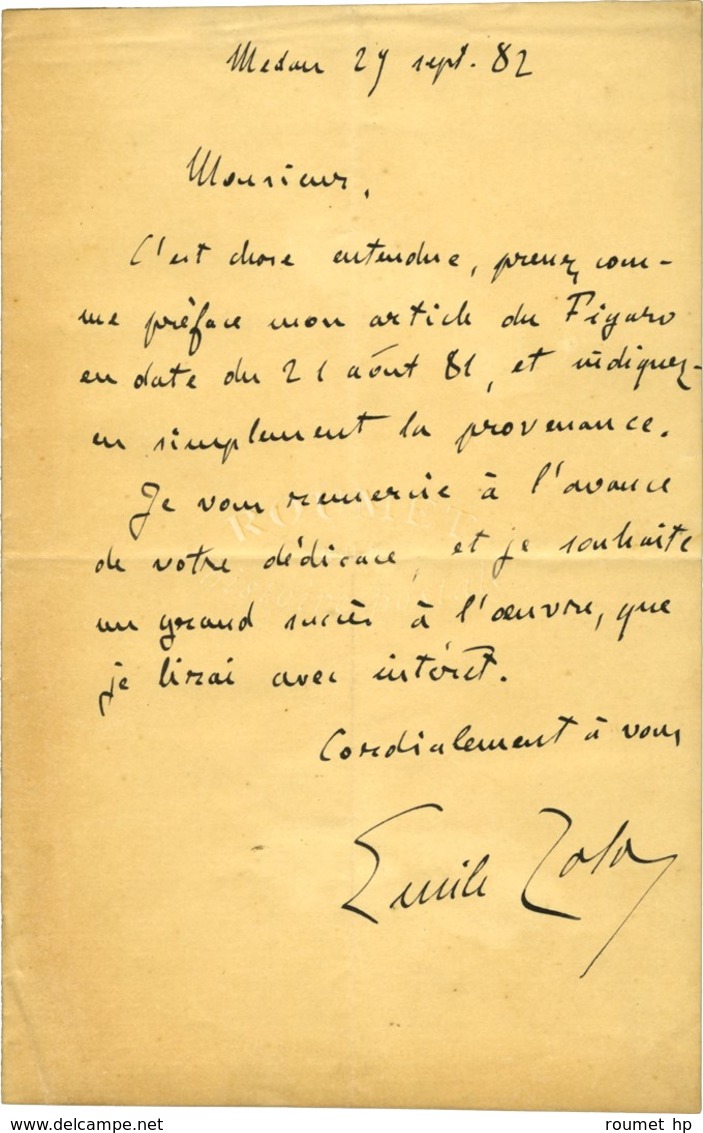 Medan 27 sept. 82
Monsieur,
C'est chose entendue, prenez com-
me préface mon article du Figaro
en date du 21 août 81, et indiquez-
en simplement la provenance.
Je vous remercie à l'avance
de votre dédicace, et je souhaite
un grand succès à l'œuvre, que
je lirai avec intérêt.
Cordialement à vous
Emile Zola
www.delcampe.net
roumet hp